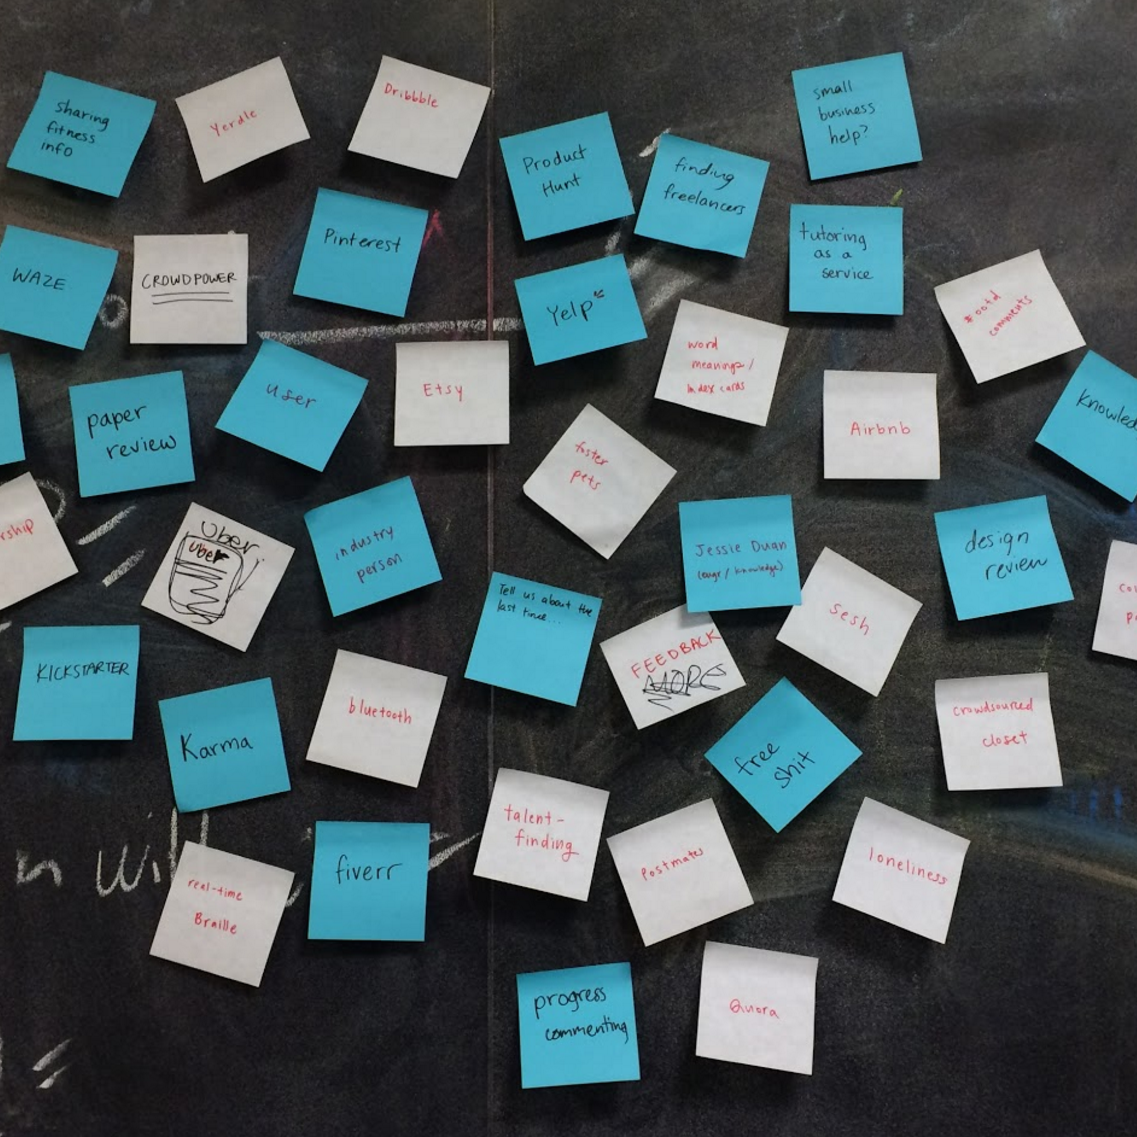 sharing
fitness
info
Yerdle
Dribbble
Product
Hunt
finding
freelancers
small
business
help?
WAZE
CROWDPOWER
Pinterest
Yelp
tutoring
as a
service
#ootd
comments
word
meanings/
index cards
paper
review
user
Etsy
foster
pets
Airbnb
knowled
rship
Uber
Uber
industry
person
Jessie Duan
design
review
Tell us about the
last time...
FEEDBACK
MORE
sesh
co
p
KICKSTARTER
Karma
bluetooth
free
shit
crowdsourced
closet
talent-
finding
Postmates
loneliness
real-time
Braille
fiverr
progress
commenting
Quora
n will